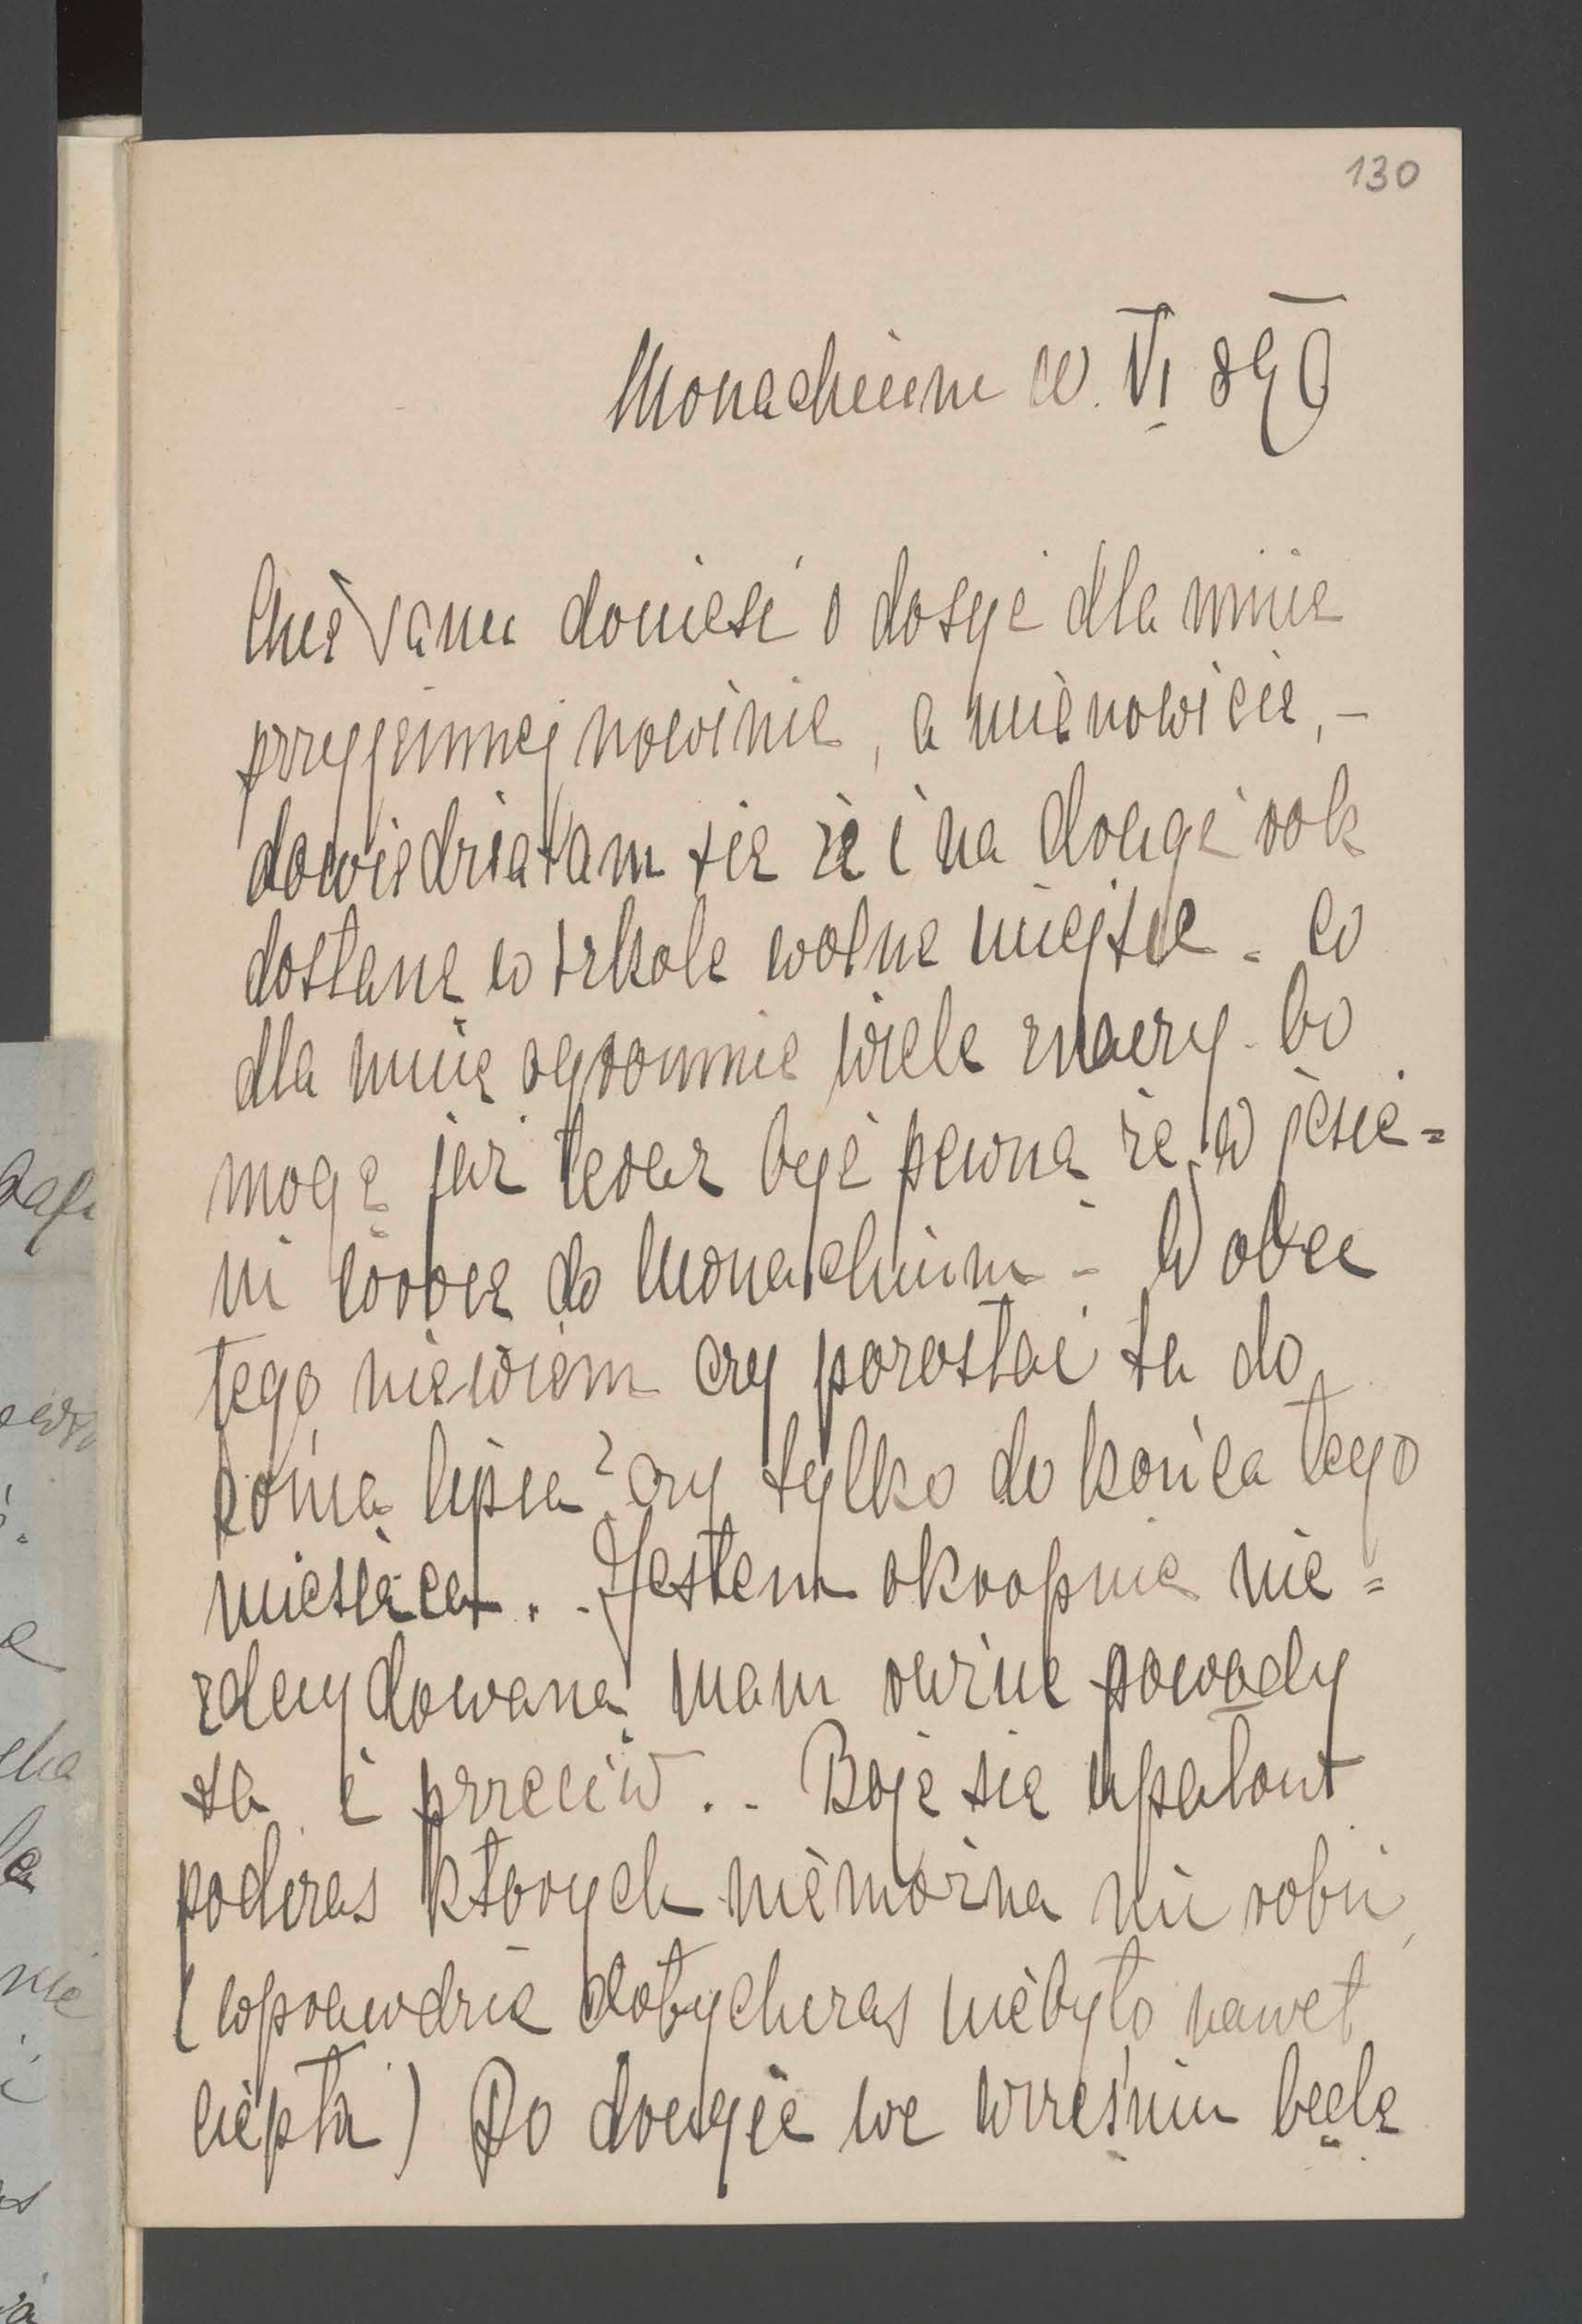 130
Monachium VI 89
Chcę Panu donieść o dosyć dla mnie
przyjemnej nowinie, a mianowicie, -
dowiedziałam się że i na drugi rok
dostanę w szkole wolne miejsce - co
dla mnie ogromnie wiele znaczy - bo
mogę już teraz być pewną że w jesie=
ni wrócę do Monachium - Wobec
tego niewiem czy pozostać tu do
końca lipca? czy tylko do końca tego
miesiąca. . Jestem okropnie nie=
zdecydowaną mam różne powody
za i przeciw. . Boję się upałów
podczas których niemożna nic robić
(wprawdzie dotychczas niebyło nawet
ciepła) Po drugie we wrześniu będę